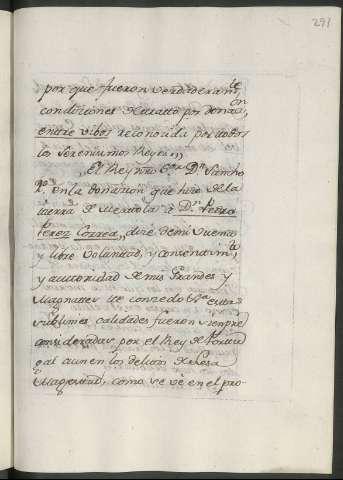 291
por que fueron verdaderam.te
condiciones de trato por donac.on
entre vibos reconocida por todos
los Serenisimos Reyes,,
,, El Rey nro S.or D.n Sancho
2.º en la donacion que hizo de la
tierra de D.n Pedro
Perez Correa,, dice de mi buena
y libre voluntad, y consentim.to
y autoridad de mis Grandes y
Magnates te conzedo estas
sublimes calidades fueron siempre
consideradas por el Rey de Portu
gal aun en los delitos de Lesa
Magestad, como se vé en el pro-